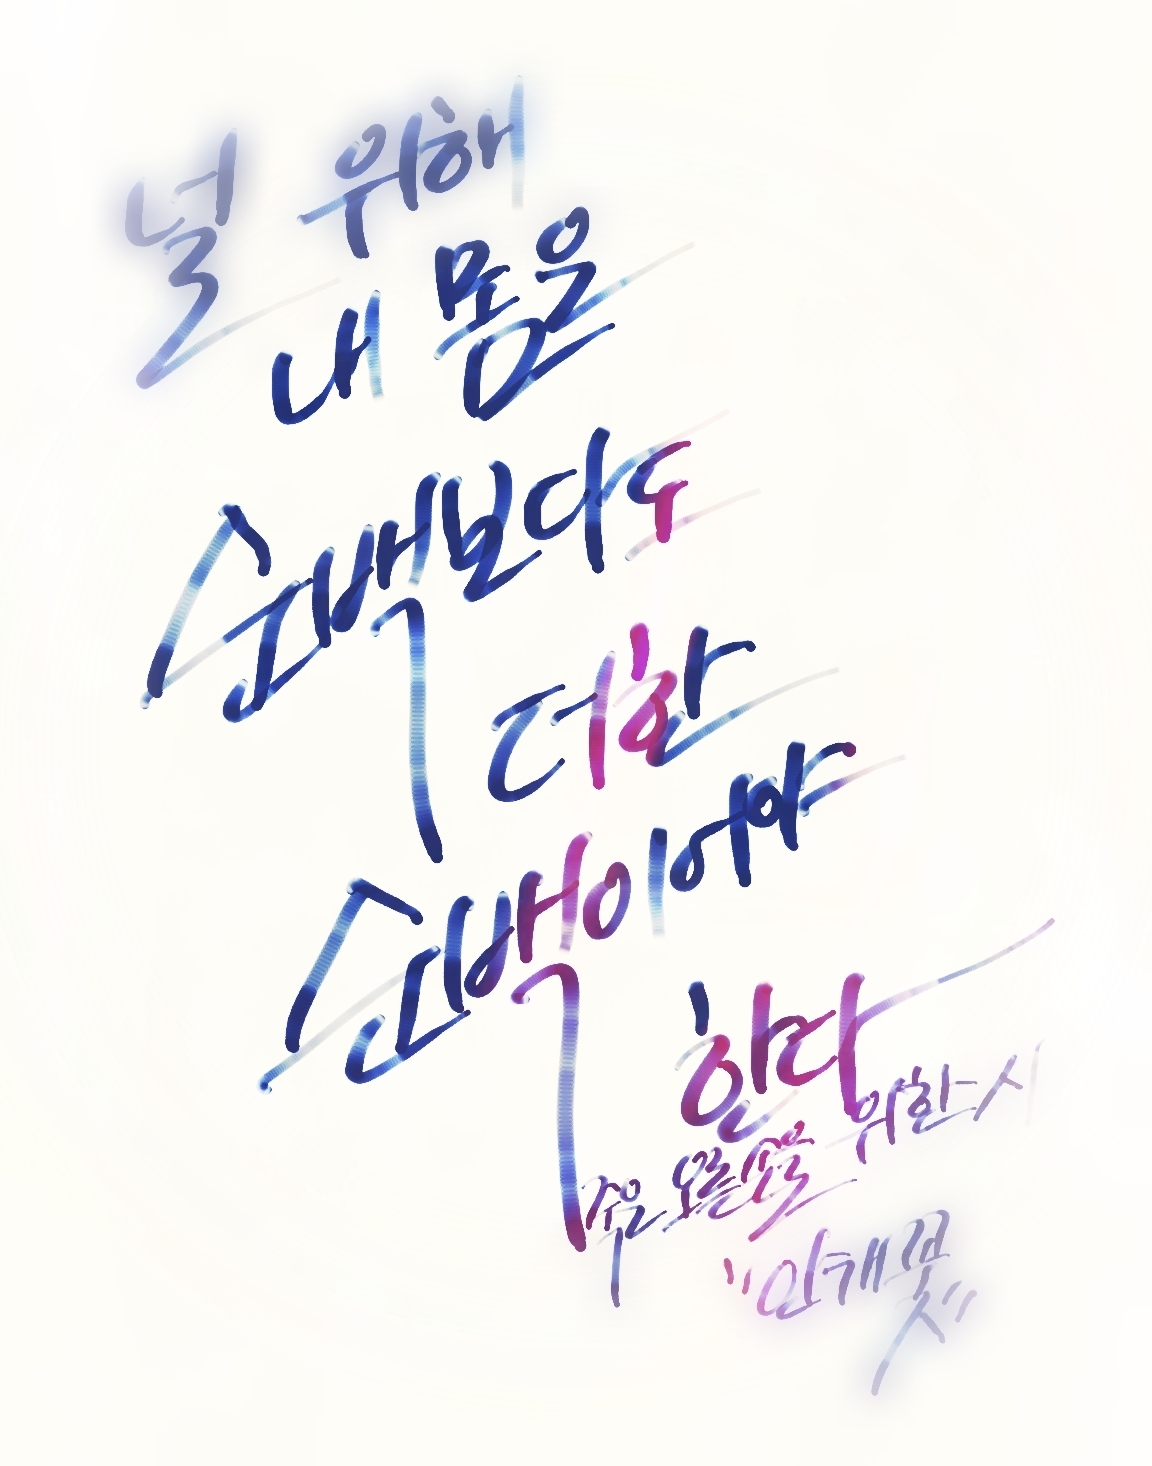 널 위해
내 몸은
순백보다도
더한
순백이어야
한다
죽은 오른손을 위한 시
"안개꽃"